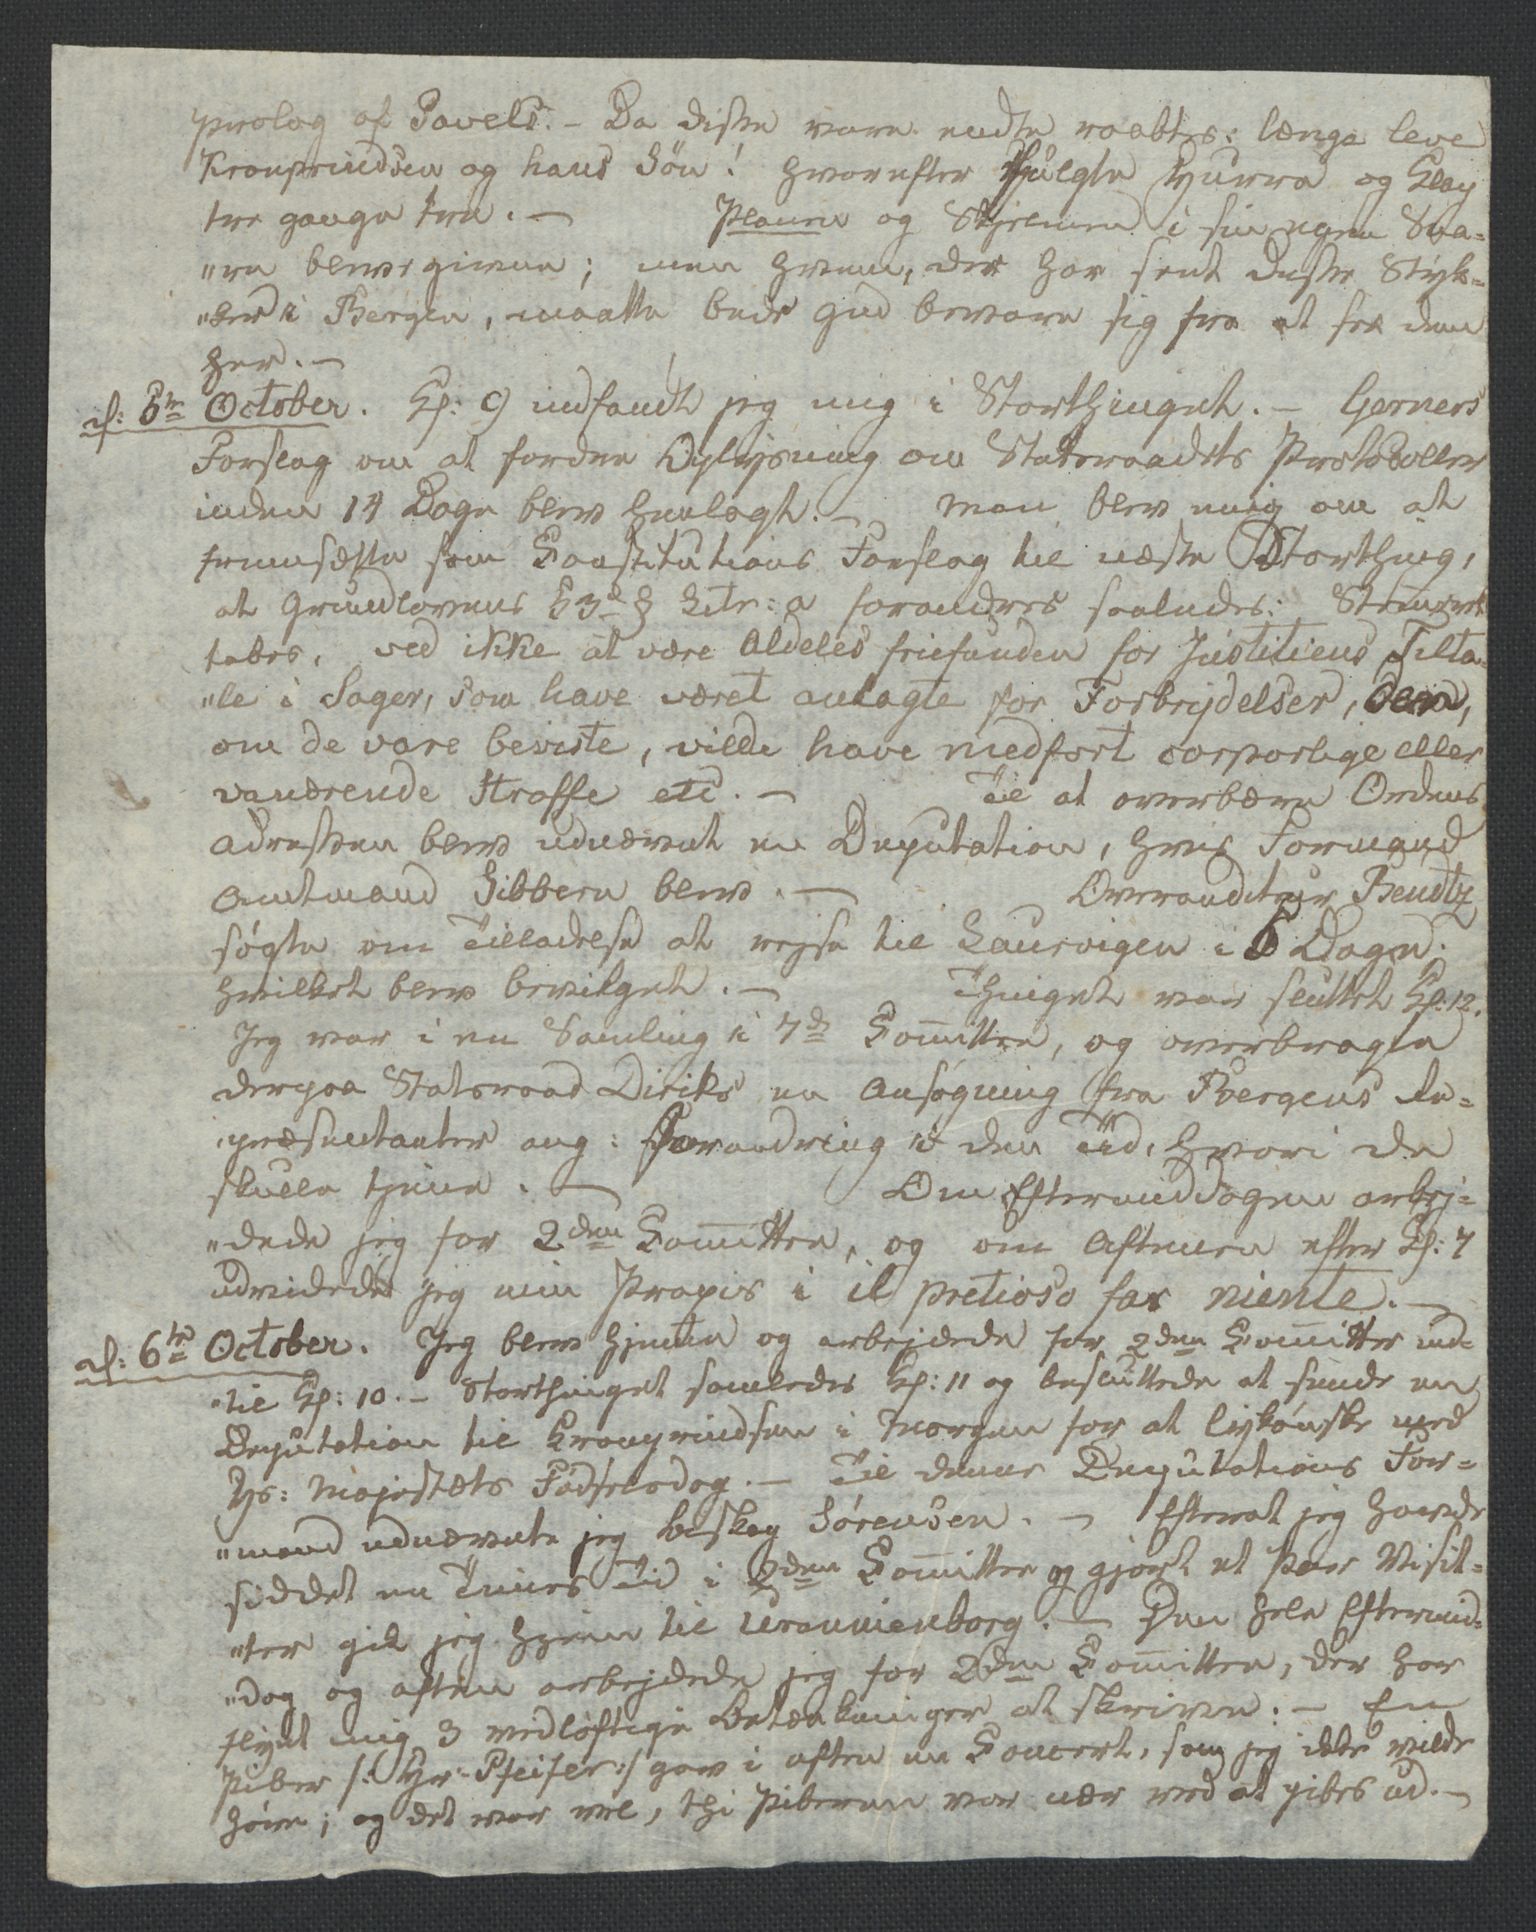 Prolog af Pavels. – Da disse vare endte raabtes: længe leve
Kronprindsen og hans Søn! hvorefter fulgte Hurra og Klap
tre gange tre. –   Planen og Skjermen i sin egen Sva-
"re bleve givne; men hvem, der har seet disse Styk-
"ker i Bergen, maatte bede Gud bevare sig fra at see dem
her. –
d: 5te October. Kl: 9 indfandt jeg mig i Storthinget. – Gerners
Forslag om at fordre Oplysning om Statsraadets Protocoller
inden 14 Dage blev henlagt. – Man blev enig om at
fremsætte som Constitutions Forslag til næste Storthing,
at Grundlovens 53de § Litr: a forandres saaledes: Stemmeret
tabes, ved ikke at være aldeles friefunden for Justitiens Tilta-
"le i Sager, som have været anlagte for Forbrydelser, der,
om de vare beviste, vilde have medført corporlige eller
vanærende Straffe etc. –   Til at overbære Ordens
adressen blev udnævnt en Deputation, hvis Formand
Amtmand Sibbern blev. –   Overauditeur Bendtz
søgte om Tilladelse at rejse til Laurvigen i 6 Dage.
hvilket blev bevilget. –   Thinget var sluttet Kl. 12.
Jeg var i en Samling i 7de Committee, og overbragte
derpaa Statsraad Diriks en Ansøgning fra Bergens Re-
"præsentanter ang: Forandring i den Tid, hvori de
skulle tjene. –   Om Eftermiddagen arbej-
"dede jeg for 2den Committee, og om Aftenen efter Kl: 7
udvidede jeg min Praxis i il pretioso far niente. –
d: 6te October. Jeg blev hjemme og arbejdede for 2den Committee ind-
"til Kl: 10. – Storthinget samledes Kl: 11 og besluttede at sende en
Deputation til Kronprindsen i Morgen for at lykønske med
Hs: Majestæts Fødselsdag. – Til denne Deputations For-
"mand udnævnte jeg Biskop Sørensen. – Efterat jeg havde
siddet en Times Tid i 2den Committee og gjort et Par Visit-
"ter gik jeg hjem til Uranienborg. – Den hele Eftermid-
"dag og Aften arbejdede jeg for 2den Committee, der har
flyet mig 3 vedløftige Betænkninger at skrive. – En
Piber /: Hr: Pfeifer :/ gav i Aften en Concert, som jeg ikke vilde
høre; og det var vel, thi Piberen var nær ved at pibes ud. –